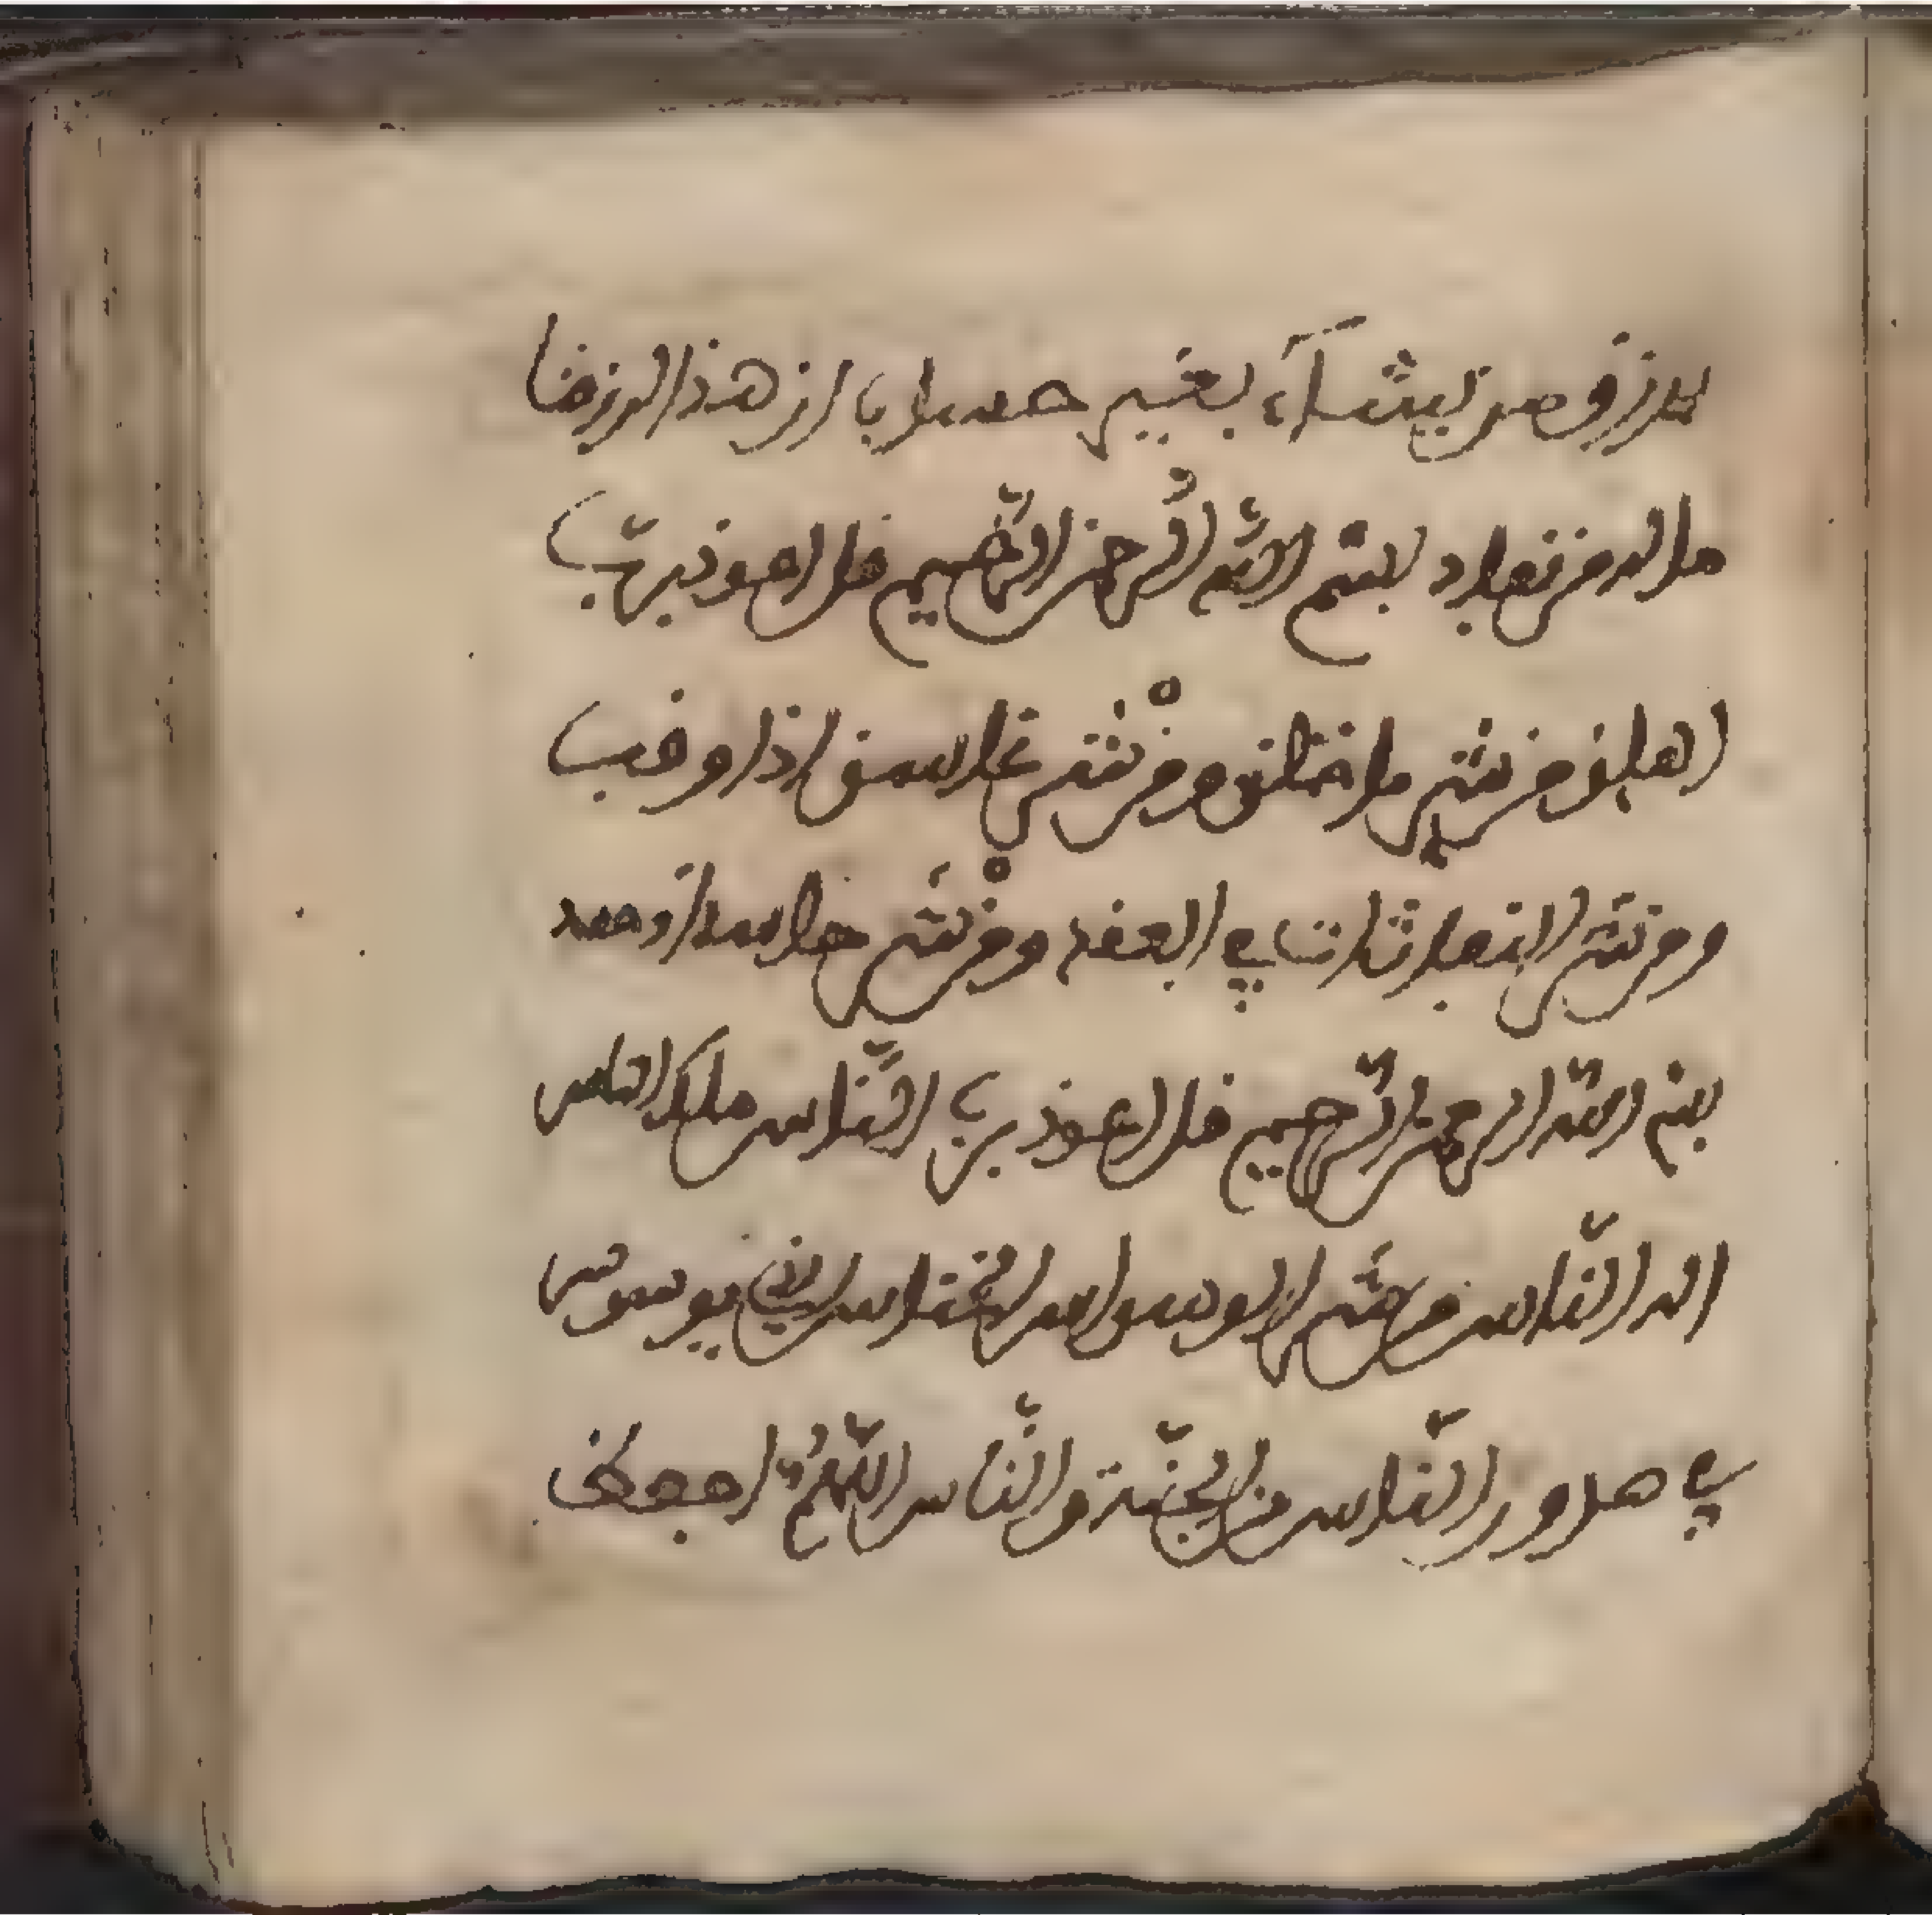 يرزق من يشآء بغير حساب ان هذا لرزقنا
ما له من نفاد بسم الله الرحمن الرحيم قل اعوذ برب
الفلق من شر ما خلق ومن شر غاسق اذا وقب
ومن شر النفاثات في العقد ومن شر حاسد اذا حسد
بسم الله الرحمن الرحيم قل اعوذ برب الناس ملك الناس
اله الناس من شر الوسواس الخناس الذي يوسوس
في صدور الناس من الجنة والناس اللهم احفظني